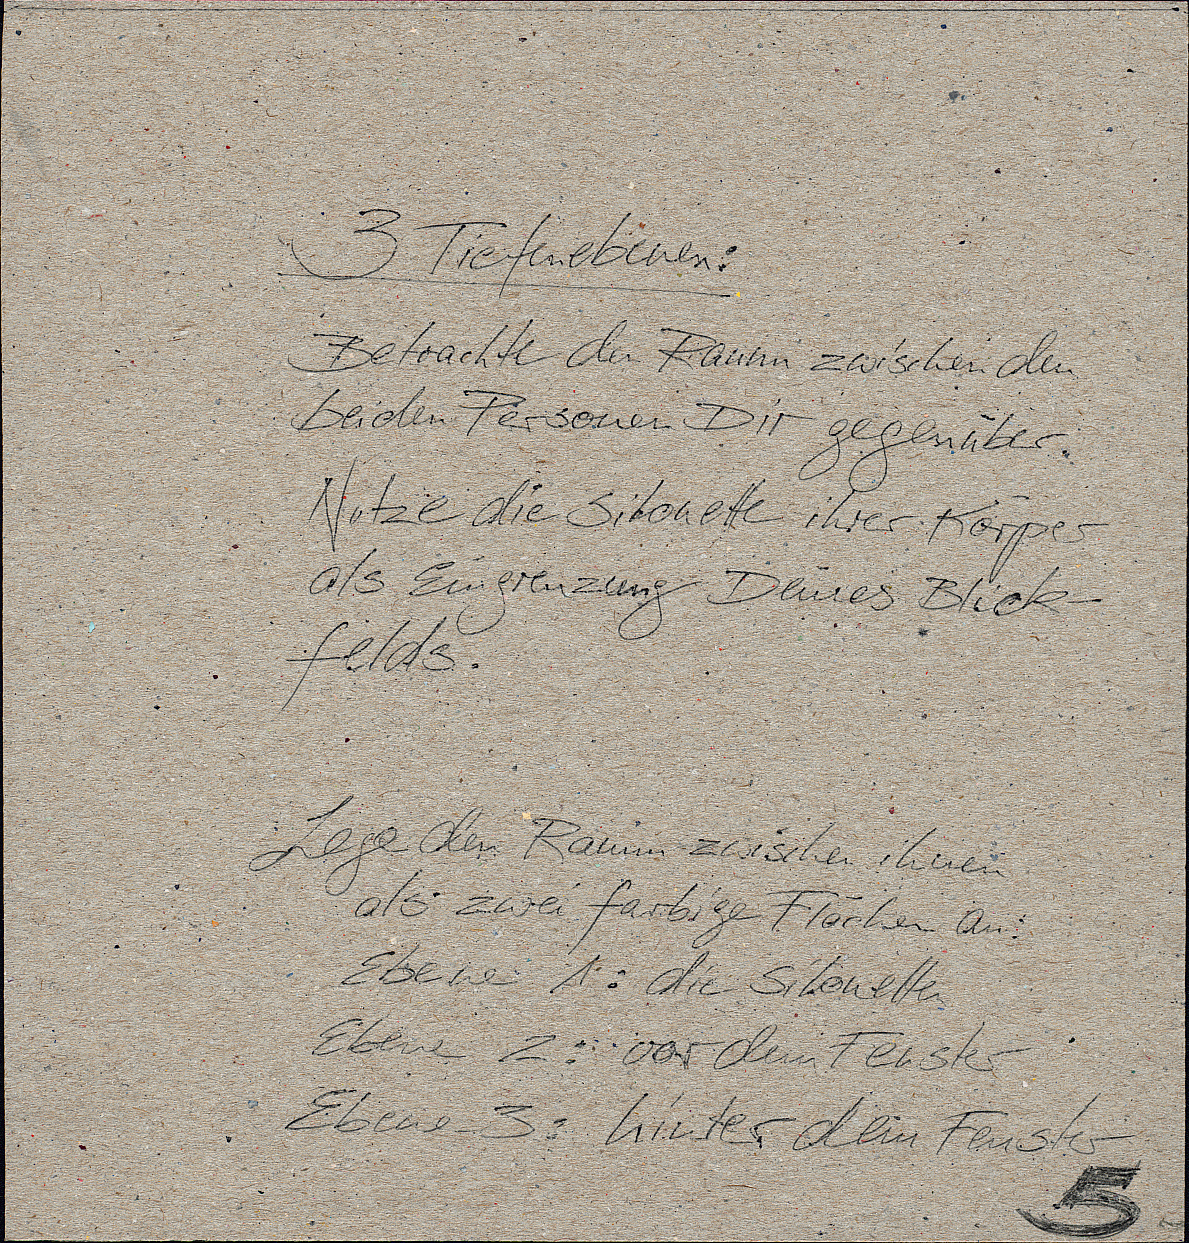 3 Tiefenebenen:
Betrachte den Raum zwischen den
beiden Personen Dir gegenüber.
Nutze die Silouette ihrer Körper
als Eingrenzung Deines Blick-
felds.
Lege den Raum zwischen ihnen
als zwei farbige Flächen an:
Ebene 1: die Silouetten
Ebene 2: vor dem Fenster
Ebene 3: hinter dem Fenster
5